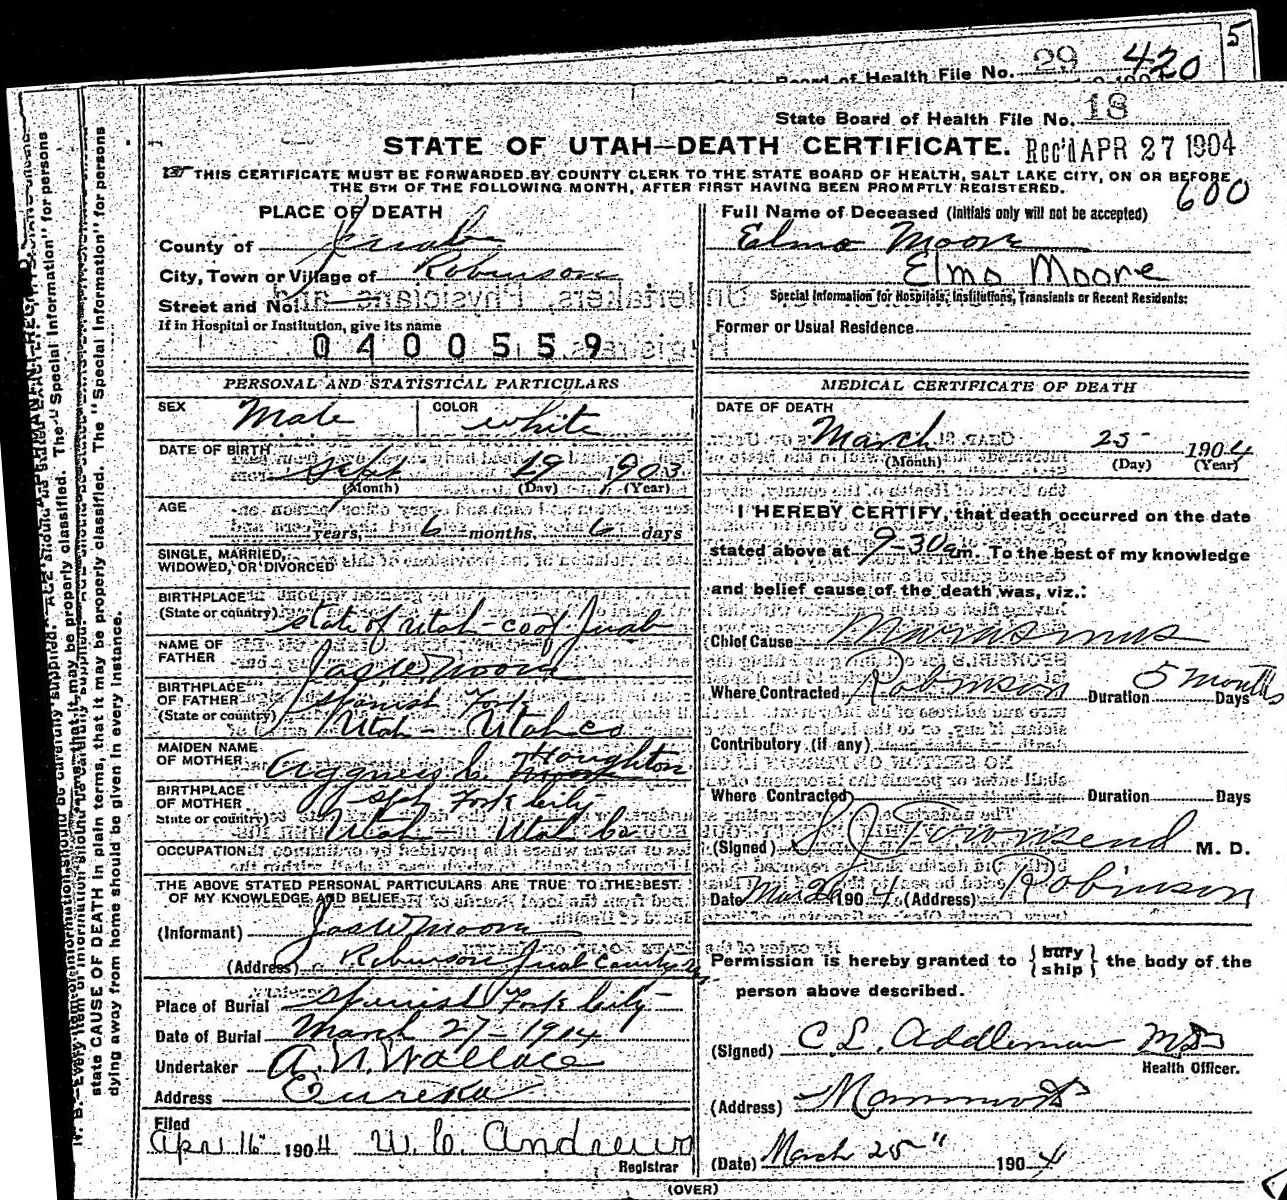 5
State Board of Health File No. 29 420
State Board of Health File No. 18
STATE OF UTAH—DEATH CERTIFICATE. Rec'd APR 27 1904
THIS CERTIFICATE MUST BE FORWARDED BY COUNTY CLERK TO THE STATE BOARD OF HEALTH, SALT LAKE CITY, ON OR BEFORE
THE 5TH OF THE FOLLOWING MONTH, AFTER FIRST HAVING BEEN PROMPTLY REGISTERED.
600
PLACE OF DEATH
County of Juab
City, Town or Village of Robinson
Street and No.
If in Hospital or Institution, give its name
0400559
Full Name of Deceased (Initials only will not be accepted)
Elmo Moore
Elmo Moore
Special Information for Hospitals, Institutions, Transients or Recent Residents:
Former or Usual Residence
PERSONAL AND STATISTICAL PARTICULARS
SEX Male COLOR white
DATE OF BIRTH Sept 19 1903
(Month) (Day) (Year)
AGE
years, 6 months, 6 days
SINGLE, MARRIED,
WIDOWED, OR DIVORCED
BIRTHPLACE
(State or country) State of Utah - co of Juab
NAME OF
FATHER Jas W Moore
BIRTHPLACE
OF FATHER Spanish Fork
(State or country) Utah - Utah co
MAIDEN NAME
OF MOTHER Aggnes C. Houghton
BIRTHPLACE
OF MOTHER Sph Fork City
State or country) Utah - Utah Co
OCCUPATION
THE ABOVE STATED PERSONAL PARTICULARS ARE TRUE TO THE BEST
OF MY KNOWLEDGE AND BELIEF
(Informant) Jas W Moore
(Address) Robinson Juab County
Place of Burial Spanish Fork City
Date of Burial March 27 - 1904
Undertaker A. N. Wallace
Address Eureka
Filed
Apr 16 1904 W. C. Andrews
Registrar
MEDICAL CERTIFICATE OF DEATH
DATE OF DEATH
March 25 - 1904
(Month) (Day) (Year)
I HEREBY CERTIFY, that death occurred on the date
stated above at 9-30 a m. To the best of my knowledge
and belief cause of the death was, viz.:
Chief Cause Marasmus
Where Contracted Robinson Duration 5 months Days
Contributory (if any)
Where Contracted Duration Days
(Signed) S J Townsend M. D.
Date Mar 26 1904. (Address) Robinson
Permission is hereby granted to { bury ship } the body of the
person above described.
(Signed) C. L. Addleman MD
Health Officer.
(Address) Mammoth
(Date) March 25" 1904
(OVER)
state CAUSE OF DEATH in plain terms, that it may be properly classified. The "Special Information" for persons
dying away from home should be given in every instance.